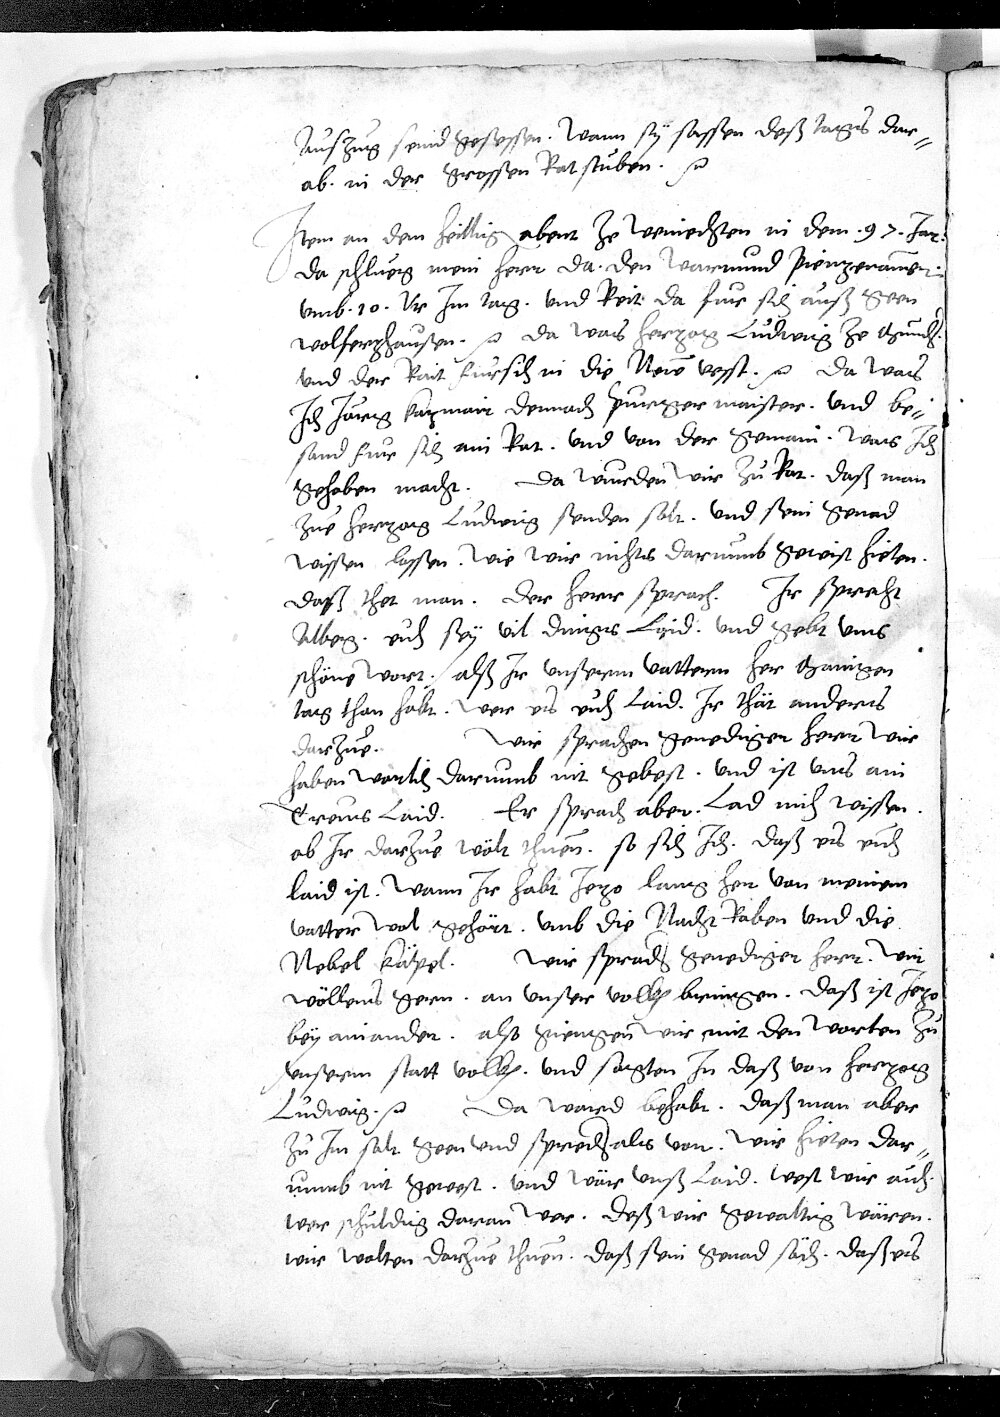 Auszug seind gesessen. Wann sÿ sassen deß tags dar=
ab. in der grossen Ratstuben.
Item an dem heillig abent Ze Weinechten in dem .97. Jar.
da schlueg mein herr da. den Warmund Pienzenawer:
vmb .10. Vr Im tag. vnd Reit da fur sich auß geen
wolfertzhausen. Da was hertzog Ludwig Ze Münch.
vnd der Rait fur sich in die New vesst. Da was
Ich Jörg Katzmair dennoch purgermaister. vnd be=
sand fur sich ain Rat. vnd von der gemain. Was Ich
gehaben macht. Da wurden wir Zu Rat. daß man
Zue hertzog Ludwig senden solt. vnd sein genad
wissen lassen. Wie wir nichts darumb gewist hieten.
daß thet man. Der herr sprach. Ir sprecht
Albeg. euch seÿ vil dings Laid. vnd gebt vns
schöne Wort. alß Ir vnserm vattern her manigen
tag than habt. Wer es euch Laid. Ir thät anders
darzue. Wir sprachen genediger herr Wir
haben Warlich darumb nit gebest. vnd ist vns ain
treus Laid. Er sprach aber. Lad mich wissen.
ob Ir darzue wölt thuen. so sich Ich. daß es euch
laid ist. Wann Ir habt Jetzo lang her von meinem
vatter wol gehört. vmb die Nacht Raben vnd die
Nebel Käpel. Wir sprach genediger herr. Wir
wöllens gern. an vnser volkh bringen. daß ist Jetzo
beÿ ainander. also giengen Wir mit den worten Zu
vnserm statt volkh. vnd sagten In daß von hertzog
Ludwig. Da ward behabt. daß man aber
Zu Im solt geen vnd sprechen als vor. Wir hieten dar=
umb nit gewest. vnd wär vnß Laid. west wir auch.
wer schuldig daran wer. deß wir gewaltig wären.
wir wolten darzue thuen. daß sein genad säch. daß es